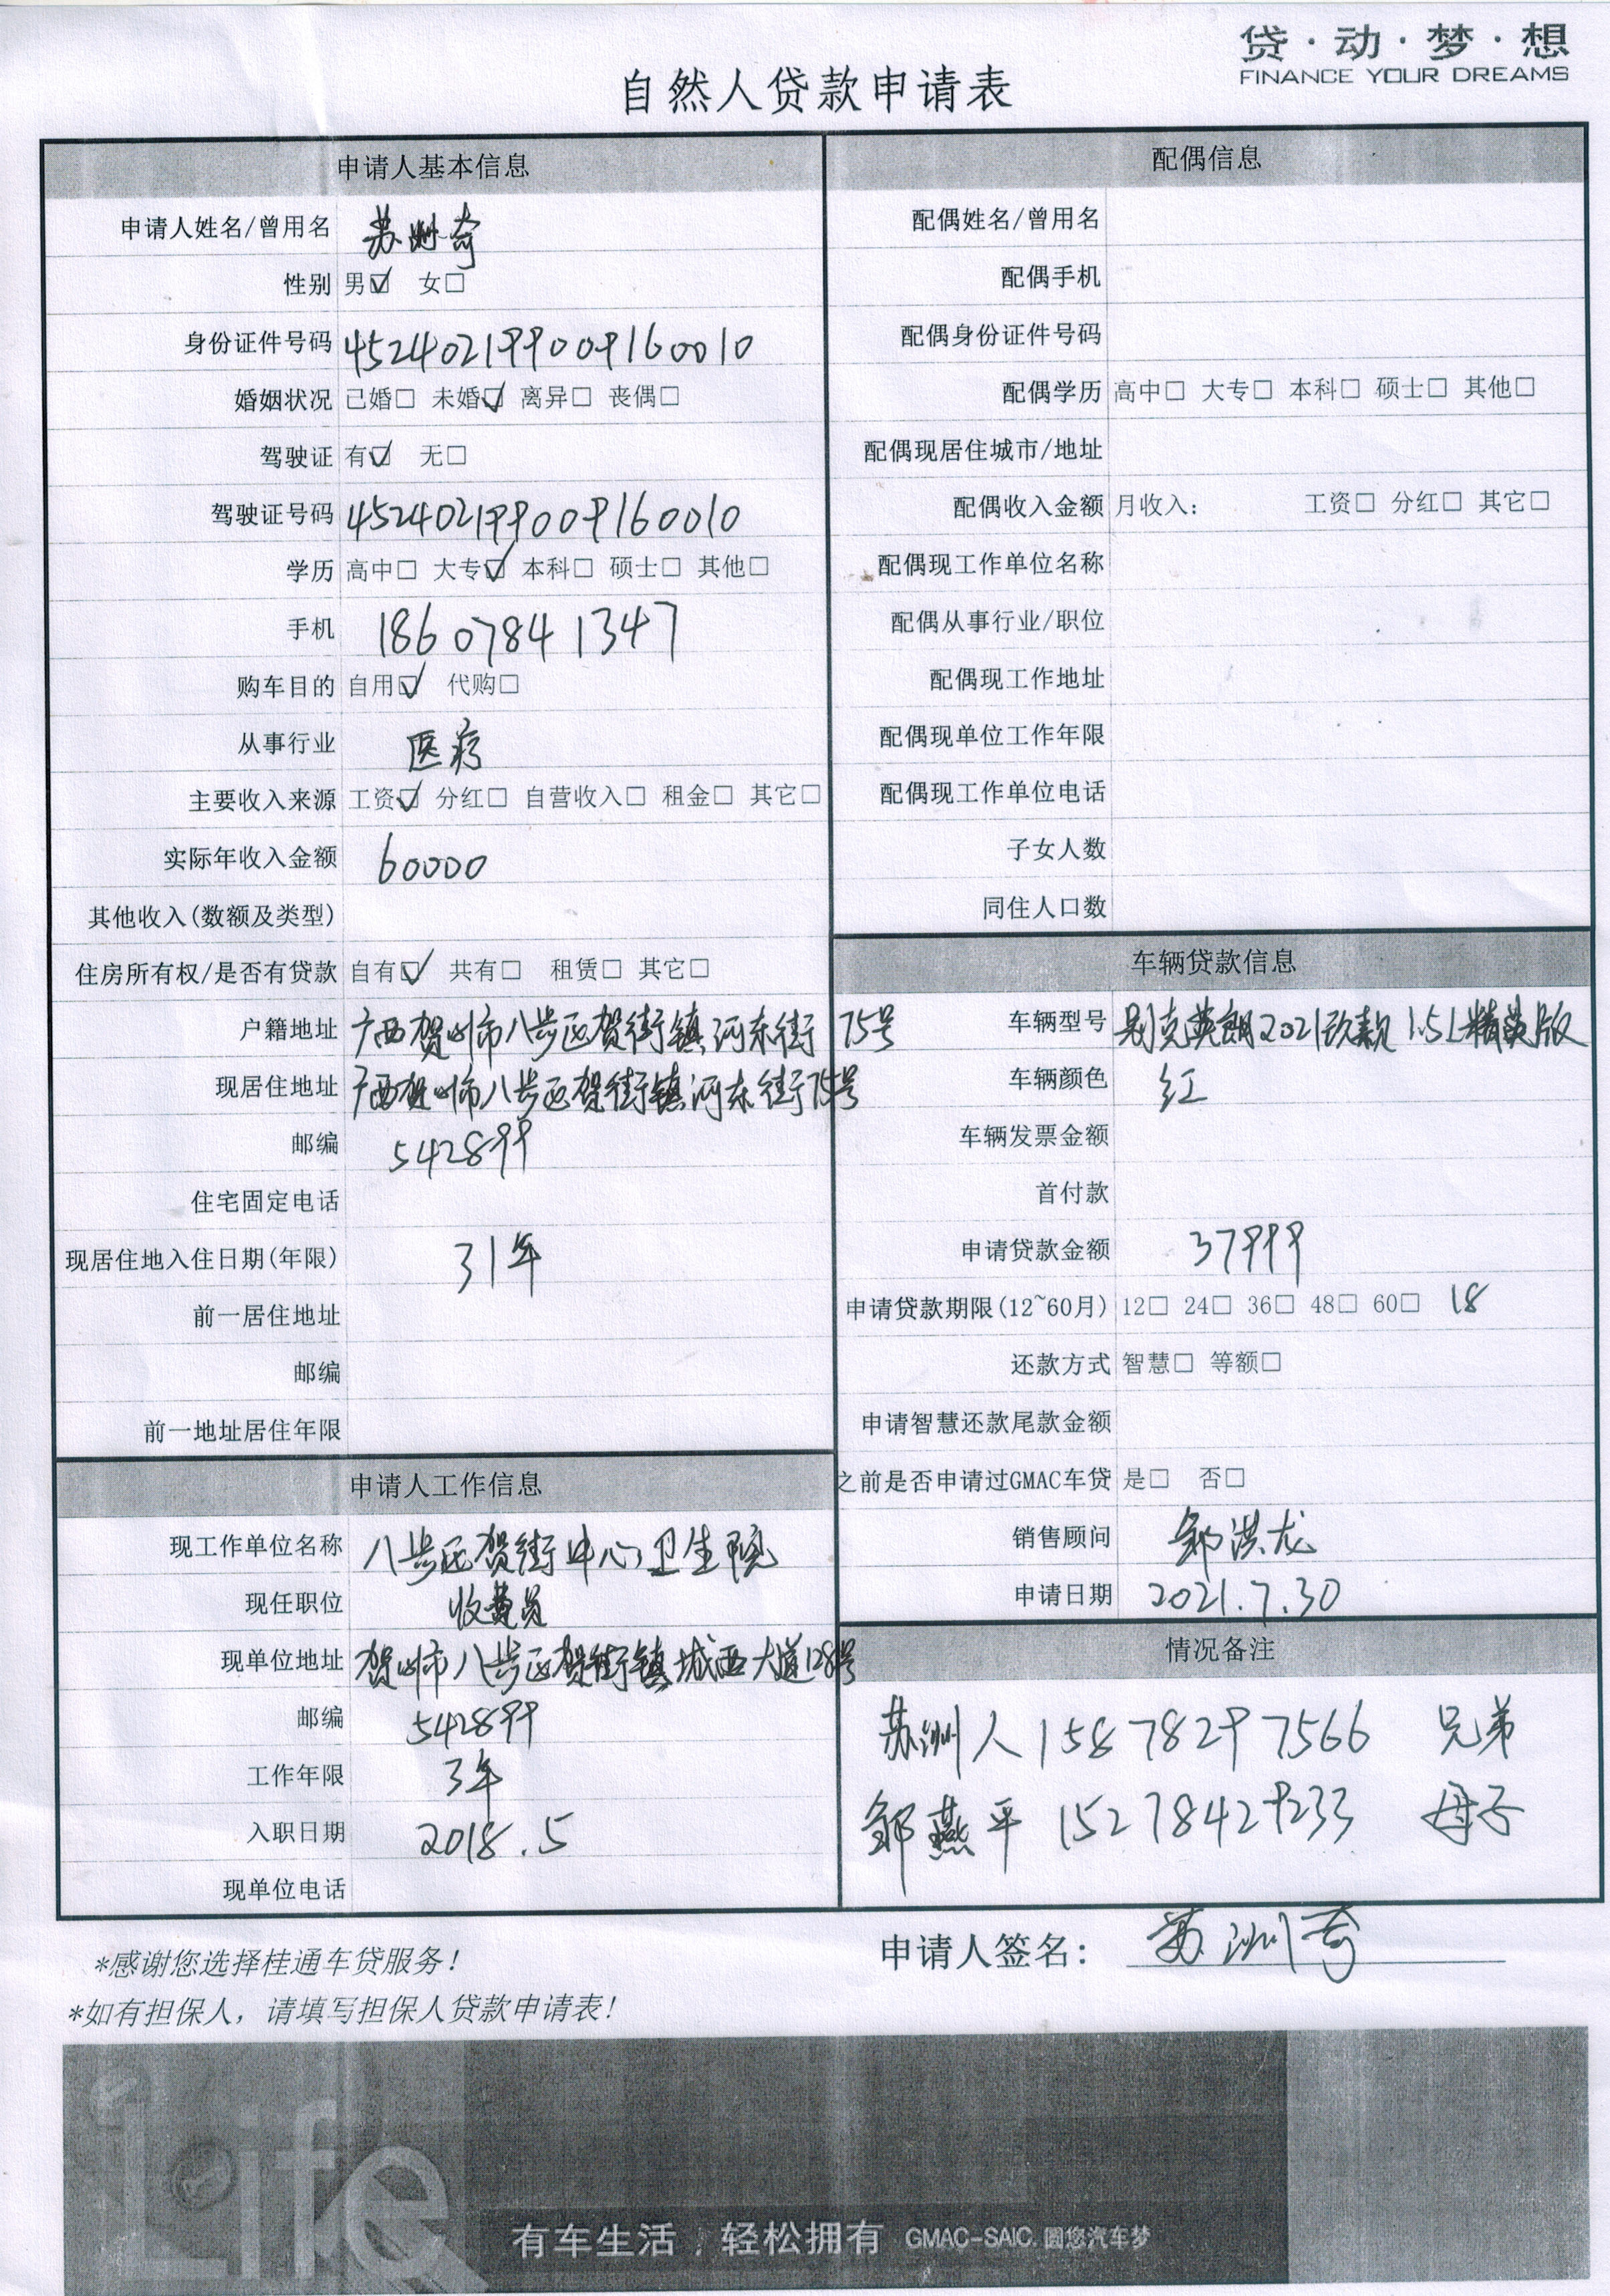 贷·动·梦·想
FINANCE YOUR DREAMS
自然人贷款申请表
申请人基本信息
申请人姓名/曾用名 苏洲奇
性别 男☑ 女□
身份证件号码 452402199009160010
婚姻状况 已婚□ 未婚☑ 离异□ 丧偶□
驾驶证 有☑ 无□
驾驶证号码 452402199009160010
学历 高中□ 大专☑ 本科□ 硕士□ 其他□
手机 18607841347
购车目的 自用☑ 代购□
从事行业 医疗
主要收入来源 工资☑ 分红□ 自营收入□ 租金□ 其它□
实际年收入金额 60000
其他收入(数额及类型)
住房所有权/是否有贷款 自有☑ 共有□ 租赁□ 其它□
户籍地址 广西贺州市八步区贺街镇河东街75号
现居住地址 广西贺州市八步区贺街镇河东街75号
邮编 542899
住宅固定电话
现居住地入住日期(年限) 31年
前一居住地址
邮编
前一地址居住年限
申请人工作信息
现工作单位名称 八步区贺街中心卫生院
现任职位 收费员
现单位地址 贺州市八步区贺街镇城西大道128号
邮编 542899
工作年限 3年
入职日期 2018.5
现单位电话
配偶信息
配偶姓名/曾用名
配偶手机
配偶身份证件号码
配偶学历 高中□ 大专□ 本科□ 硕士□ 其他□
配偶现居住城市/地址
配偶收入金额 月收入: 工资□ 分红□ 其它□
配偶现工作单位名称
配偶从事行业/职位
配偶现工作地址
配偶现单位工作年限
配偶现工作单位电话
子女人数
同住人口数
车辆贷款信息
车辆型号 别克英朗2021改款 1.5L精英版
车辆颜色 红
车辆发票金额
首付款
申请贷款金额 37999
申请贷款期限(12~60月) 12□ 24□ 36□ 48□ 60□ 18
还款方式 智慧□ 等额□
申请智慧还款尾款金额
之前是否申请过GMAC车贷 是□ 否□
销售顾问 邹洪龙
申请日期 2021.7.30
情况备注
苏洲人 15878297566 兄弟
邹燕平 15278429233 母子
申请人签名: 苏洲奇
*感谢您选择桂通车贷服务!
*如有担保人，请填写担保人贷款申请表!
Life
有车生活，轻松拥有 GMAC-SAIC.圆您汽车梦